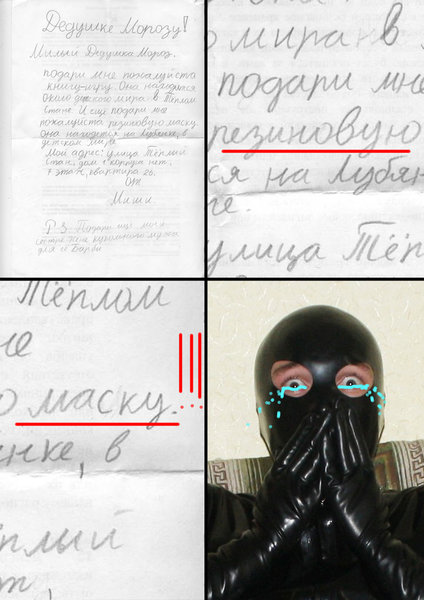 Дедушке Морозу!
Милый Дедушка Мороз,
подари мне пожалуйста
книгу-игру. Она находится
около детского мира в Тёплом
Стане И ещё подари мне
пожалуйста резиновую маску
она находится на Лубянке, в
детском мире
Мой адрес: улица Тёплый
Стан, дом корпус нет,
7 этаж, квартира 26.
От
Миши.
P.S. Подари ещё
сестре кукольного мужа
для её Барби
о мира в
подари мне
резиновую
ся на Лубян
ре.
улица Тёп
Тёплом
не
ю маску. !!!
янке, в
ёплый